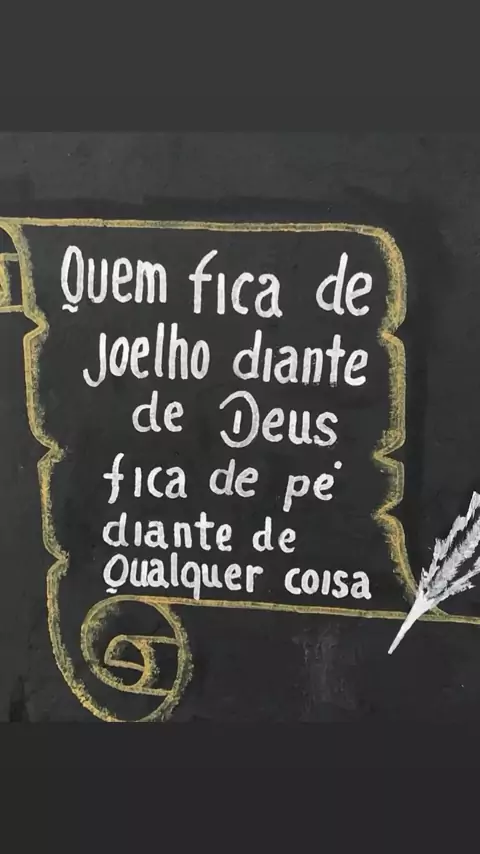 Quem fica de
Joelho diante
de Deus
fica de pé
diante de
Qualquer coisa